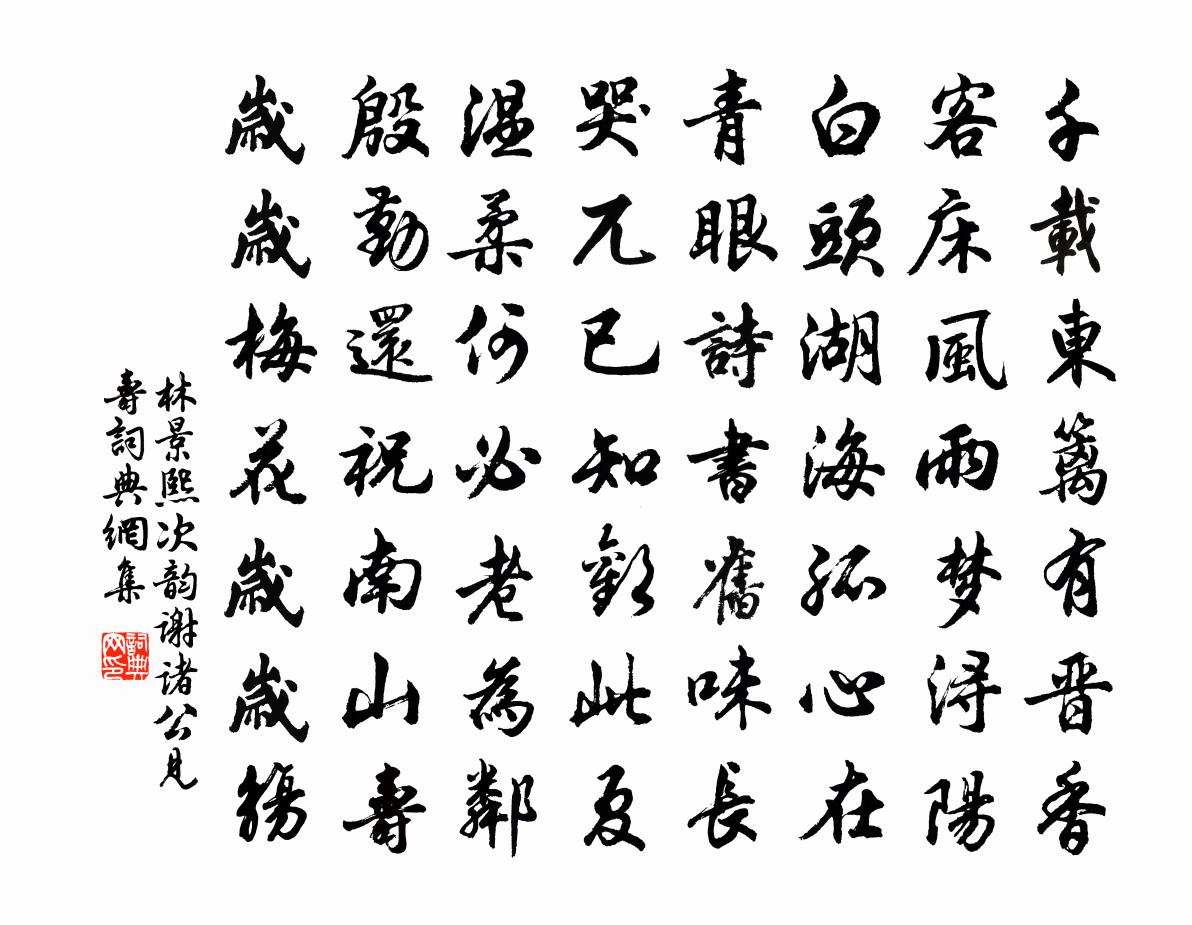 千載東籬有晋香
客床風雨梦浔陽
白頭湖海孤心在
青眼詩書舊味長
哭兀已知歡此夏
温柔何必老為鄰
殷勤還祝南山壽
歲歲梅花歲歲觴
林景熙次韵谢诸公見
壽詞典網集
詞典网印